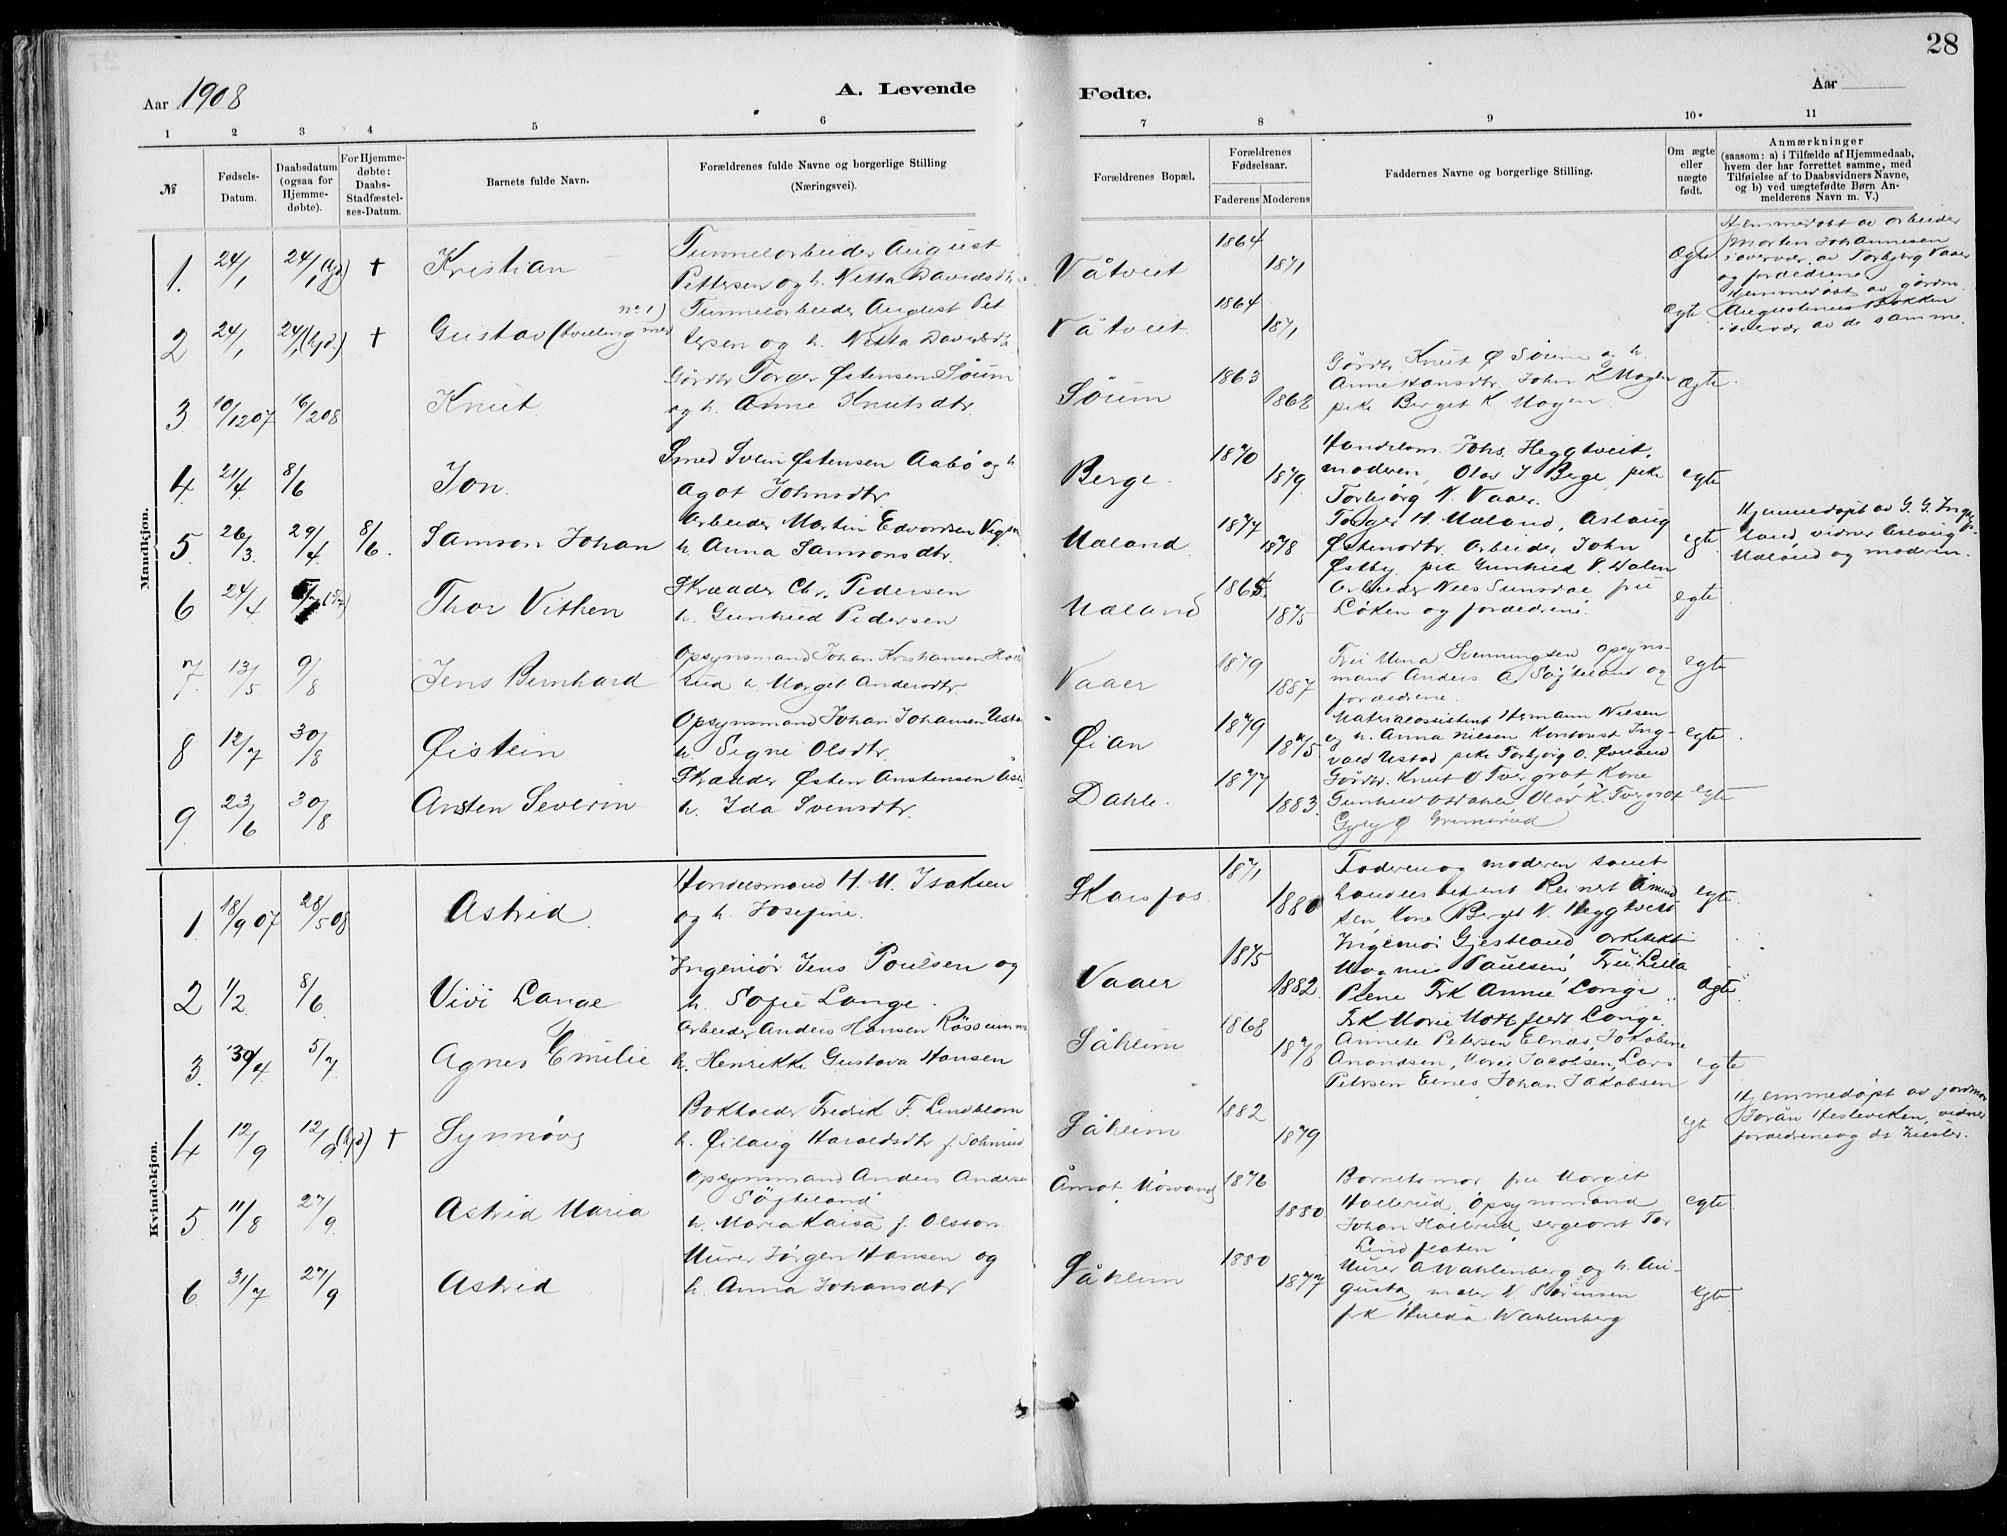 28
Aar 1908
A. Levende
Fødte.
Aar
1 2 3 4 5 6
7 8 9 10. 11
№
Fødsels-
Datum.
Daabsdatum
(ogsaa for
Hjemme-
døbte).
For Hjemme-
døbte:
Daabs-
Stadfæstel-
ses-Datum.
Barnets fulde Navn.
Forældrenes fulde Navne og borgerlige Stilling
(Næringsvei).
Forældrenes Bopæl.
Forældrenes
Fødselsaar.
Faderens Moderens
Faddernes Navne og borgerlige Stilling.
Om ægte
eller
uægte
født.
Anmærkninger
(saasom: a) i Tilfælde af Hjemmedaab,
hvem der har forrettet samme, med
Tilføielse af to Daabsvidners Navne,
og b) ved uægtefødte Børn An-
melderens Navn m. V.)
Mandkjøn.
1. 24/1 24/1 † Kristian
Tunnelarbeider August
Pettersen og h. Netta Davidsdtr.
Våtveit
1864
1871
Ægte
Hjemmedøbt av arbeider
Morten Johannesen
i overvær av Torbjørg Vaaer
og forældrene
2 24/1 24/1 (hjd.) † Gustav (tvilling med
no 1)
Tunnelarbeider August Pet
tersen og h. Netta Davidsdtr.
Våtveit
1864
1871
ægte
Hjemmedøbt av gårdm.
Augustinus Bakken
i overvær av de samme.
3 10/12 07 16/2 08 Knut
Gårdbr Torger Østensen Söum
og h. Anne Knutsdtr.
Söum
1863
1868
Gårdbr. Knut Ø Söum og h.
Anne Hansdtr. John K Mogen
pike Berget K Mogen
Ægte
4. 21/4. 8/6 Jon.
Smed Svein Østensen Aabø og h
Agot Johnsdtr.
Berge.
1870
1879.
Handelsm. Johs. Heggtveit,
moderen, Olav J Berge, pike
Torbjørg N. Vaaer.
egte
5. 26/3. 29/4 8/6. Samson Johan
Arbeider Martin Edvardsen
h. Anna Samsonsdtr.
Mæland.
1877
1878
Torger H. Mæland, Aslaug
Østensdtr. Arbeider John
Østby pike Gunhild P. Dalen
egte
Hjemmedøpt av G. G. Ingolfs-
land, vidner Aslaug
Mæland og moderen.
6 24/4 Thor Vithen
Skrædder Chr. Pedersen
h. Gunhild Pedersen
Mæland
1865.
1875
Arbeider Nels Sunsdal fru
Løken og forældrene.
egte
7. 13/5 9/8 Jens Bernhard
Opsynsmand Johan Kristiansen Holle
rud h. Margit Andersdtr.
Vaaer
1879
1887
Fru Mina Svenningsen opsyns-
mand Anders A Søgteland og
forældrene.
egte
8 12/7 30/8 Øistein
Opsynsmand Johan Johansen Ustad
h. Signe Olsdtr.
Øian
1879
1875
Materialassistent Hermann Nielsen
og h. Anna Nielsen Kontorist Ing-
vald Ustad pike Torbjørg O. Øverland
egte.
9 23/6 30/8 Ansten Severin
Skrædder Østen Anstensen
h. Ida Svensdtr.
Dahle.
1877
1883.
Gårdbr. Knut O Tvergrot Kone
Gunhild Olav K. Tvergrot
Gyly Ø Grimsrud
egte
Kvindekjøn.
1 18/9 07 28/5 08 Astrid.
Handelsmand H. M. Isaksen
og h. Josefine.
Skarsfos.
1871
1880
Faderen og moderen samt
handelsbetjent Reinert Amund
sen Kone Berget N. Heggtveit
egte.
2 1/2. 8/6. Vivi Lange
Ingeniør Jens Poulsen og
h. Sofie Lange.
Vaaer
1875
1882.
Ingeniør Gjestland arkitekt
Magnus Paulsen, Fru Lilla
Plene Frk Annie Lange.
Frk Marie Motzfeldt Lange.
Ægte
3. 30/4 5/7 Agnes Emilie
Arbeider Anders Hansen
h. Henrikke Gustava Hansen
Såheim
1868
1878
Annete Petersen Elnæs, Jakobine
Amandsen, Marie Jacobsen, Lars
Petersen Elnes Johan Jakobsen
egte
4 12/9 12/9 (hjd) † Synnöve
Bokholder Fredrik F. Lindblom
h. Öilaug Haraldsdtr f.
Såheim
1882
1879
egte
Hjemmedøpt av jordmor
Jorån Hesleviken, vidner
forældrene og dr
5 11/8 27/9. Astrid Maria
Opsynsmand Anders Andersen
Søgteland
h. Maria Kaisa f. Olsson.
Åmot, Møsvand
1876
1880.
Barnets mor fru Margit
Hollerud, opsynsmand
Johan Hollerud, sergeant Tor
Lindflaten
egte.
6. 31/7 27/9 Astrid
Murer Jørgen Hansen og
h. Anna Johansdtr
Såheim
1880
1877
Murer A Wahlenberg og h. Au-
gusta, maler N Sörensen
frk Hulda Wahlenberg
egte